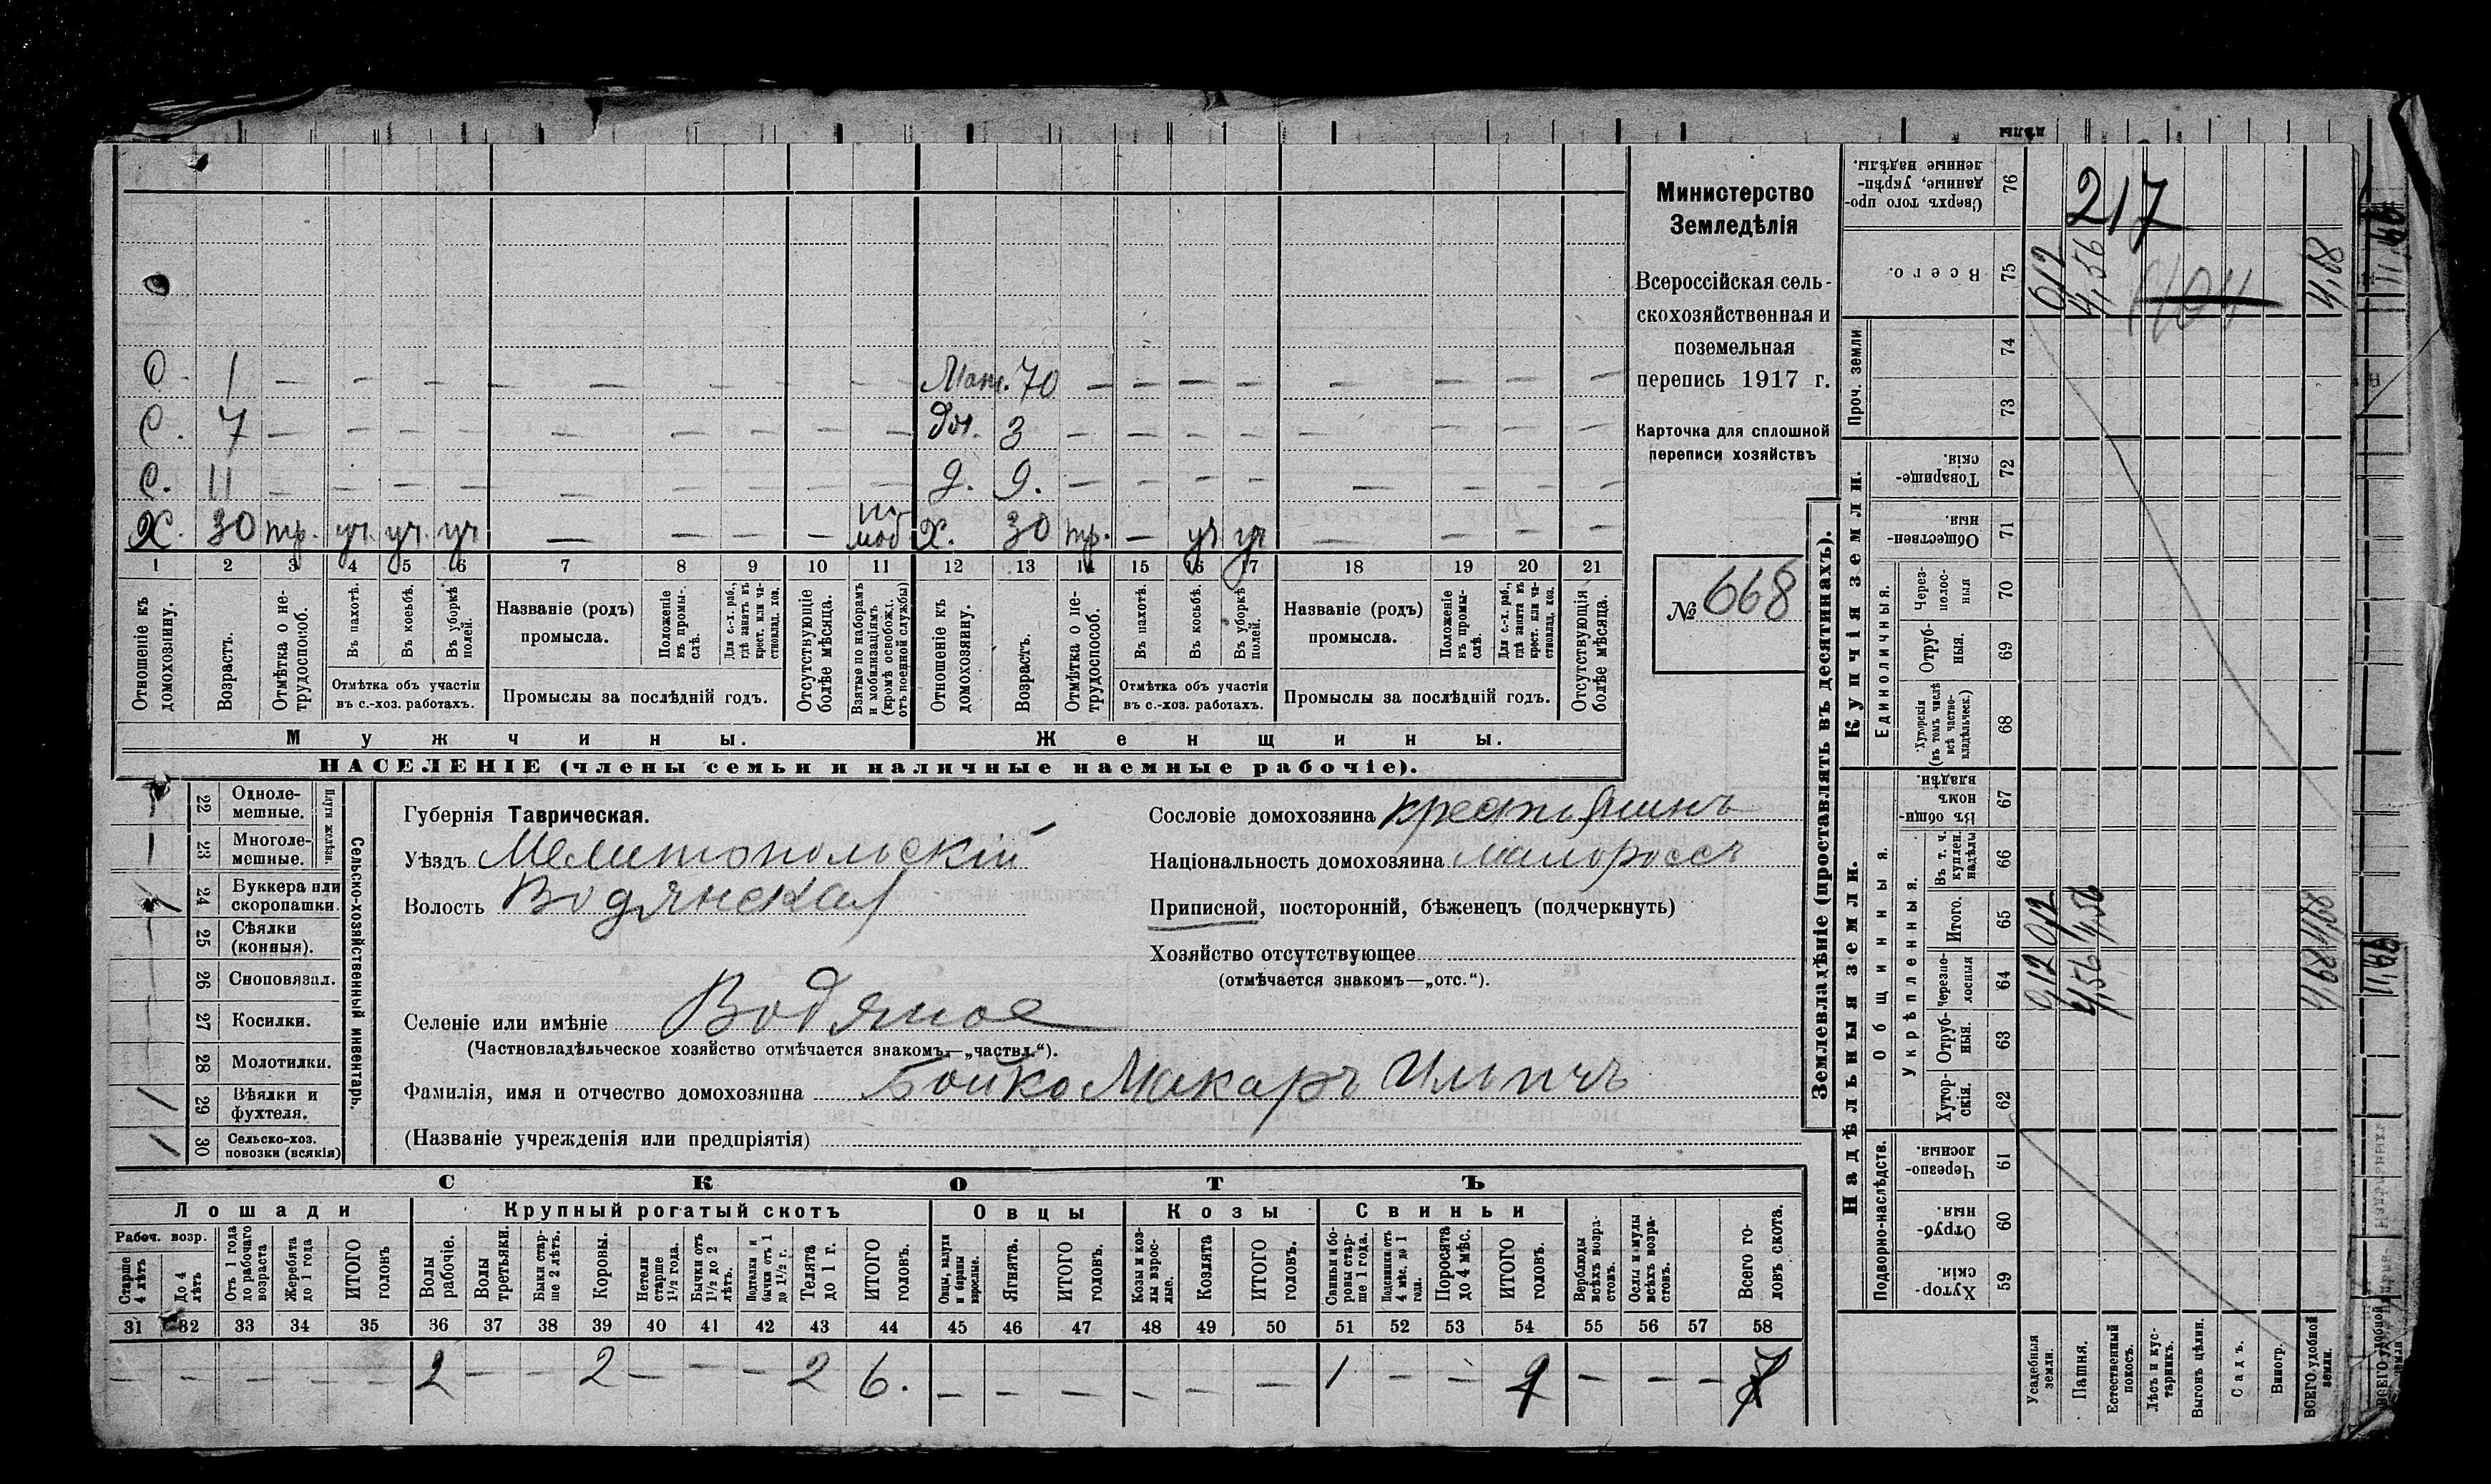 О. 1 — — — — — — — — — Мат. 70 — — — — — — — —
С. 7 — — — — — — — — — Доч. 3 — — — — — — — —
С. 11 — — — — — — — — — д. 9. — — — — — — — —
Х. 30 тр. уч. уч. уч — — — — моб Х. 30 тр. — уч уч — — — —
1 2 3 4 5 6 7 8 9 10 11 12 13 14 15 16 17 18 19 20 21
Отношеніе къ домохозяину.
Возрастъ.
Отмѣтка о не-
трудоспособ.
Въ пахотѣ.
Въ косьбѣ.
Въ уборкѣ
полей.
Отмѣтка объ участіи
въ с.-хоз. работахъ.
Названіе (родъ)
промысла.
Положеніе
въ промы-
слѣ.
Для с.-х. раб.,
гдѣ занятъ въ
крест. или ча-
стновлад. хоз.
Промыслы за послѣдній годъ.
Отсутствующіе
болѣе мѣсяца.
Взятые по наборамъ
и мобилизаціямъ
(кромѣ освобожд.
отъ военной службы)
Отношеніе къ
домохозяину.
Возрастъ.
Отмѣтка о не-
трудоспособ.
Въ пахотѣ.
Въ косьбѣ.
Въ уборкѣ
полей.
Отмѣтка объ участіи
въ с.-хоз. работахъ.
Названіе (родъ)
промысла.
Положеніе
въ промы-
слѣ.
Для с.-х. раб.,
гдѣ занята въ
крест. или ча-
стновлад. хоз.
Промыслы за послѣдній годъ.
Отсутствующія
болѣе мѣсяца.
Мужчины.
Женщины.
НАСЕЛЕНІЕ (члены семьи и наличные наемные рабочіе).
Министерство
Земледѣлія
Всероссійская сель-
скохозяйственная и
поземельная
перепись 1917 г.
Карточка для сплошной
переписи хозяйствъ
№ 668
22 Одноле-
мешные.
1 23 Многоле-
мешные.
Плуги желѣзн.
1 24 Буккера или
скоропашки.
— 25 Сѣялки
(конныя).
26 Сноповязал.
27 Косилки.
28 Молотилки.
1 29 Вѣялки и
фухтеля.
1 30 Сельско-хоз.
повозки (всякія)
Сельско-хозяйственный инвентарь.
Губернія Таврическая.
Уѣздъ Мелитопольскій
Волость Водянская
Селеніе или имѣніе Водяное
(Частновладѣльческое хозяйство отмѣчается знакомъ—„частвл.“).
Фамилія, имя и отчество домохозяина Бойко Макаръ Ильичъ
(Названіе учрежденія или предпріятія)
Сословіе домохозяина крестьянинъ
Національность домохозяина малороссъ
Приписной, посторонній, бѣженецъ (подчеркнуть)
Хозяйство отсутствующее
(отмѣчается знакомъ—„отс.“).
СКОТЪ
Лошади
Крупный рогатый скотъ
Овцы
Козы
Свиньи
Рабоч. возр.
Старше
4 лѣтъ
До 4
лѣтъ
Отъ 1 года
до рабочаго
возраста
Жеребята
до 1 года
ИТОГО
головъ
Волы
рабочіе.
Волы
третьяки.
Быки стар-
ше 2 лѣтъ.
Коровы.
Нетели
старше
1½ года.
Бычки отъ
1½ до 2
лѣтъ.
Подтелки и
бычки отъ 1
до 1½ г.
Телята
до 1 г.
ИТОГО
головъ.
Овцы, валухи
и бараны
взрослые.
Ягнята.
ИТОГО
головъ.
Козы и коз-
лы взрос-
лые.
Козлята
ИТОГО
головъ.
Свиньи и бо-
ровы стар-
ше 1 года.
Подсвинки отъ
4 мѣс. до 1
года.
Поросята
до 4 мѣс.
ИТОГО
головъ.
Верблюды
всѣхъ возра-
стовъ.
Ослы и мулы
всѣхъ возра-
стовъ.
Всего го-
ловъ скота.
31 32 33 34 35 36 37 38 39 40 41 42 43 44 45 46 47 48 49 50 51 52 53 54 55 56 57 58
— — — — — 2 — — 2 — — — 2 6. — — — — — — 1 — — 1 — — — 7
Землевладѣніе (проставлять въ десятинахъ).
Надѣльныя земли.
Купчія земли.
Проч. земли
Подворно-наслѣдств.
Общинныя.
Укрѣпленныя.
Единоличныя.
Сверхъ того про-
данные, укрѣп-
ленные надѣлы.
76
217
Всего.
75 0,12 4,56 4,68
74
73
Товарище-
скія.
72
Обществен-
ныя.
71
Через-
полос-
ныя
70
Отруб-
ныя.
69
Хуторскія
(въ томъ числѣ
всѣ частно-
владѣльческ.)
68
Въ общин-
номъ
владѣн.
67
Въ т. ч.
куплен.
надѣлы
66
Итого.
65 0,12 4,56 4,68
Черезпо-
лосныя
64 0,12 4,56 4,68
Отруб-
ныя.
63
Хутор-
скія.
62
Черезпо-
лосныя.
61
Отруб-
ныя.
60
Хутор-
скія.
59
Усадебныя
земли.
Пашня.
Естественный
покосъ.
Лѣсъ и кус-
тарникъ.
Выгонъ цѣлин.
Садъ.
Виногр.
ВСЕГО удобной
земли.
ВСЕГО удобной
земли